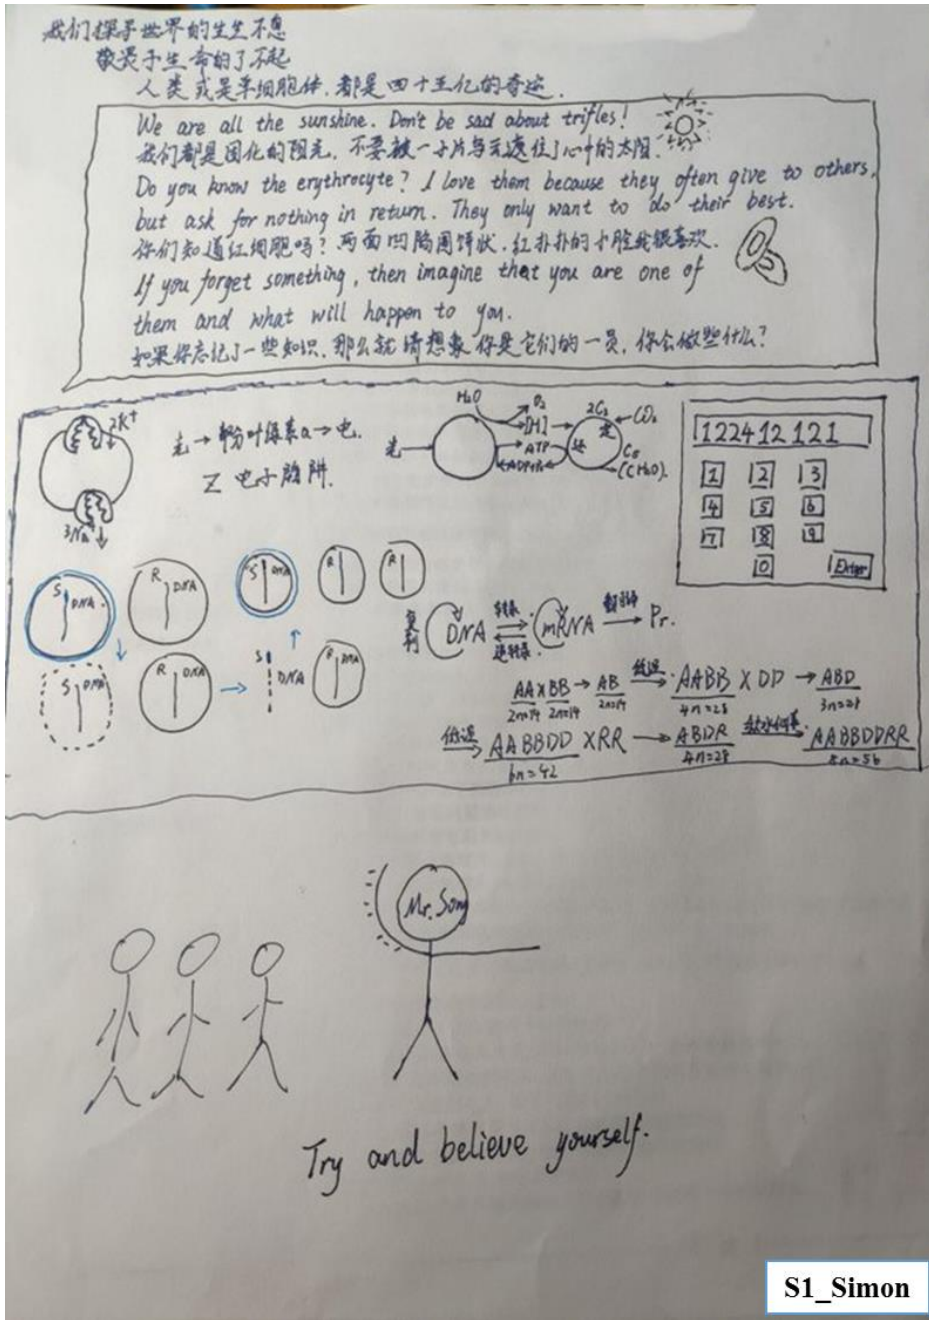 我们探寻世界的生生不息
敬畏于生命的了不起
人类或是单细胞体,都是四十五亿的奇迹.
We are all the sunshine. Don't be sad about trifles!
我们都是固化的阳光,不要被一小片乌云遮住了心中的太阳.
Do you know the erythrocyte? I love them because they often give to others,
but ask for nothing in return. They only want to do their best.
你们知道红细胞吗?两面凹陷圆饼状,红扑扑的小脸我很喜欢.
If you forget something, then imagine that you are one of
them and what will happen to you.
如果你忘记了一些知识,那么就请想象你是它们的一员,你会做些什么?
2K⁺
3Na⁺
光→部分叶绿素a→电.
Z 电子陷阱.
光
H₂O
O₂
[H]
ATP
ADP+Pi
2C₃
CO₂
还
C₅
(CH₂O).
122412121
1 2 3
4 5 6
7 8 9
0 Enter
S DNA.
R DNA
S DNA
R
R
S DNA
R DNA
S DNA
R DNA
复制 DNA 转录 逆转录. mRNA 翻译 Pr.
AA×BB→AB 低温 AABB×DD→ABD
2n=14 2n=14 2n=14 4n=28 3n=21
低温 AABBDD×RR→ABDR 秋水仙素. AABBDDRR
6n=42 4n=28 8n=56
Mr. Song
Try and believe yourself.
S1_Simon